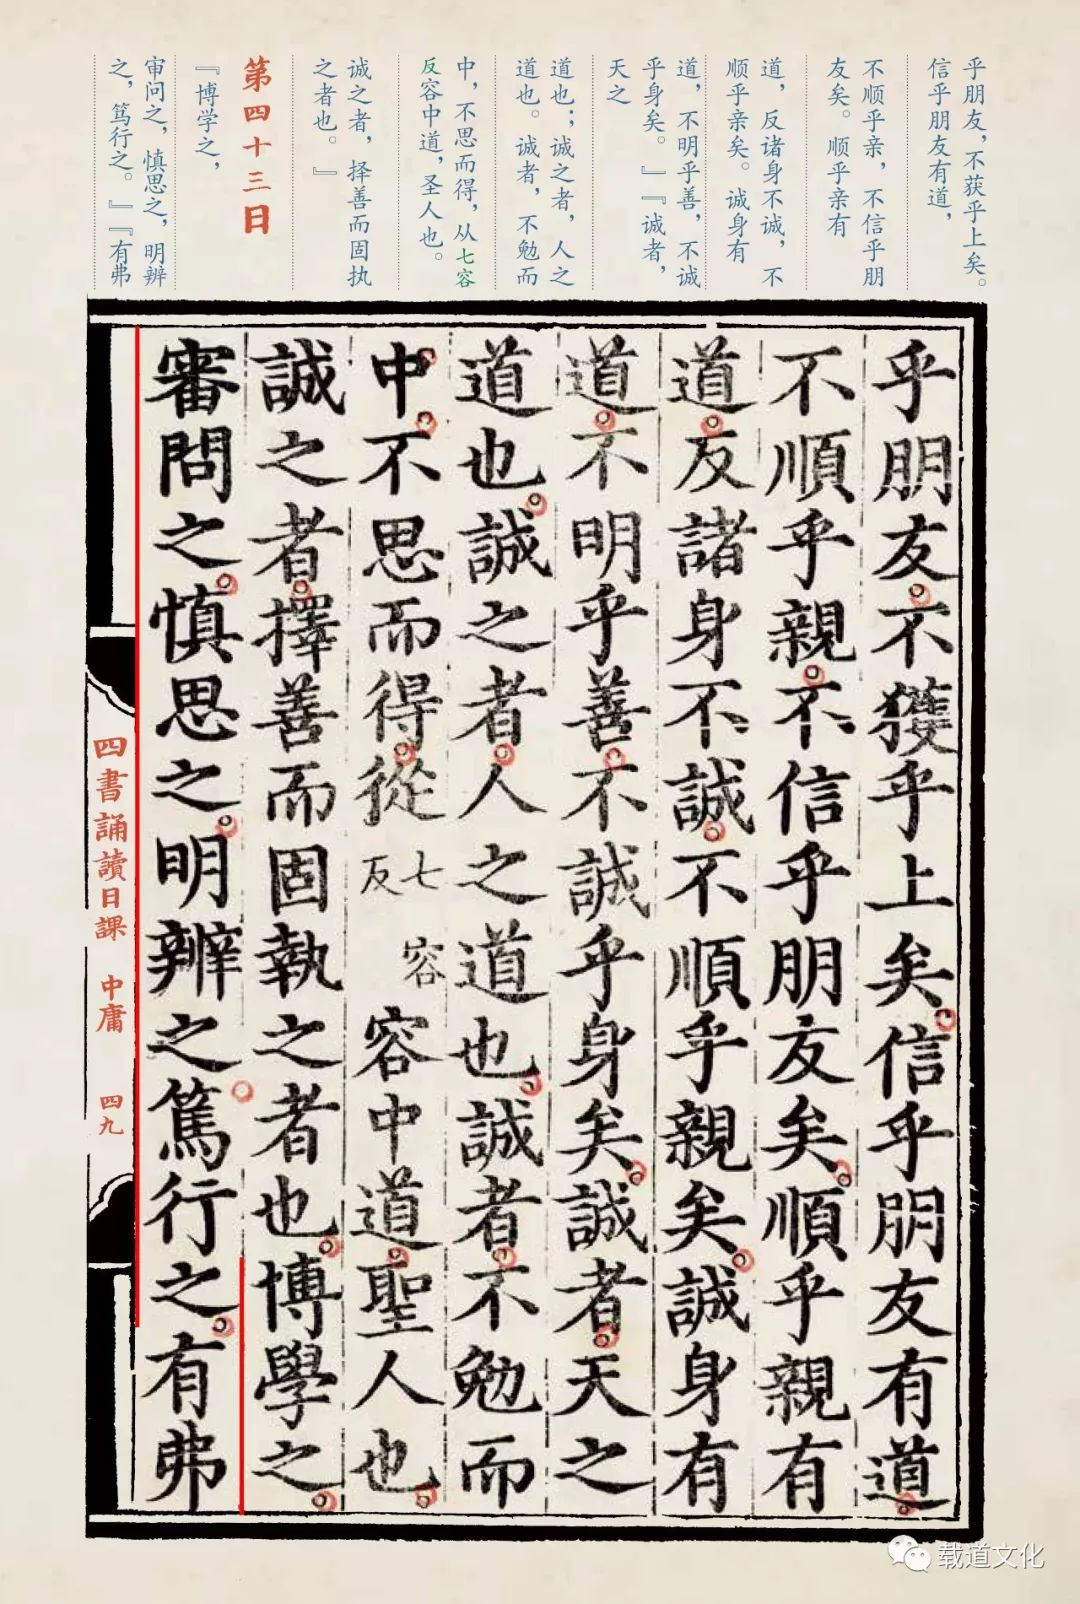 乎朋友，不获乎上矣。
信乎朋友有道，
不顺乎亲，不信乎朋
友矣。顺乎亲有
道，反诸身不诚，不
顺乎亲矣。诚身有
道，不明乎善，不诚
乎身矣。』『诚者，
天之
道也；诚之者，人之
道也。诚者，不勉而
中，不思而得，从七容
反容中道，圣人也。
诚之者，择善而固执
之者也。』
第四十三日
『博学之，
审问之，慎思之，明辨
之，笃行之。』『有弗
乎朋友不獲乎上矣信乎朋友有道
不順乎親不信乎朋友矣順乎親有
道反諸身不誠不順乎親矣誠身有
道不明乎善不誠乎身矣誠者天之
道也誠之者人之道也誠者不勉而
中不思而得從七容反容中道聖人也
誠之者擇善而固執之者也博學之
審問之慎思之明辨之篤行之有弗
四書誦讀日課 中庸 四九
载道文化